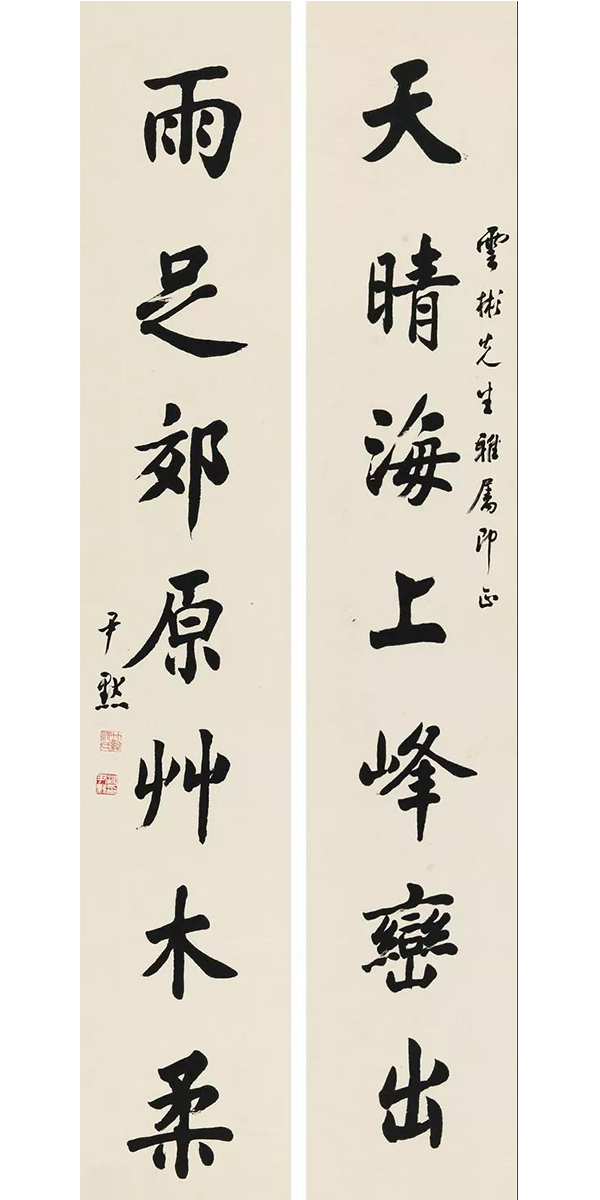 雲彬先生雅属即正
天晴海上峰巒出
雨足郊原艸木柔
尹默